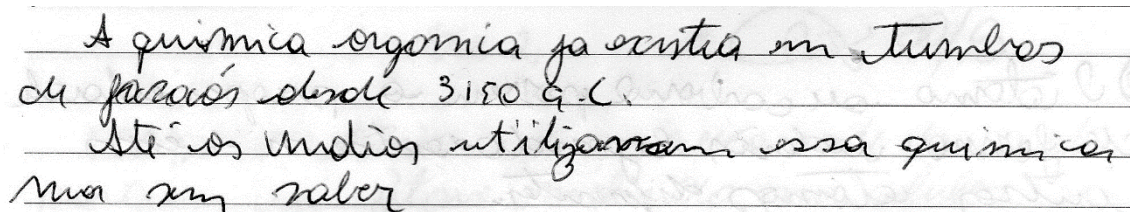 A quimica organica ja existia em tumbas
de faraós desde 3150 a.C.
Até os indios utilizavam essa quimica
mas sem saber